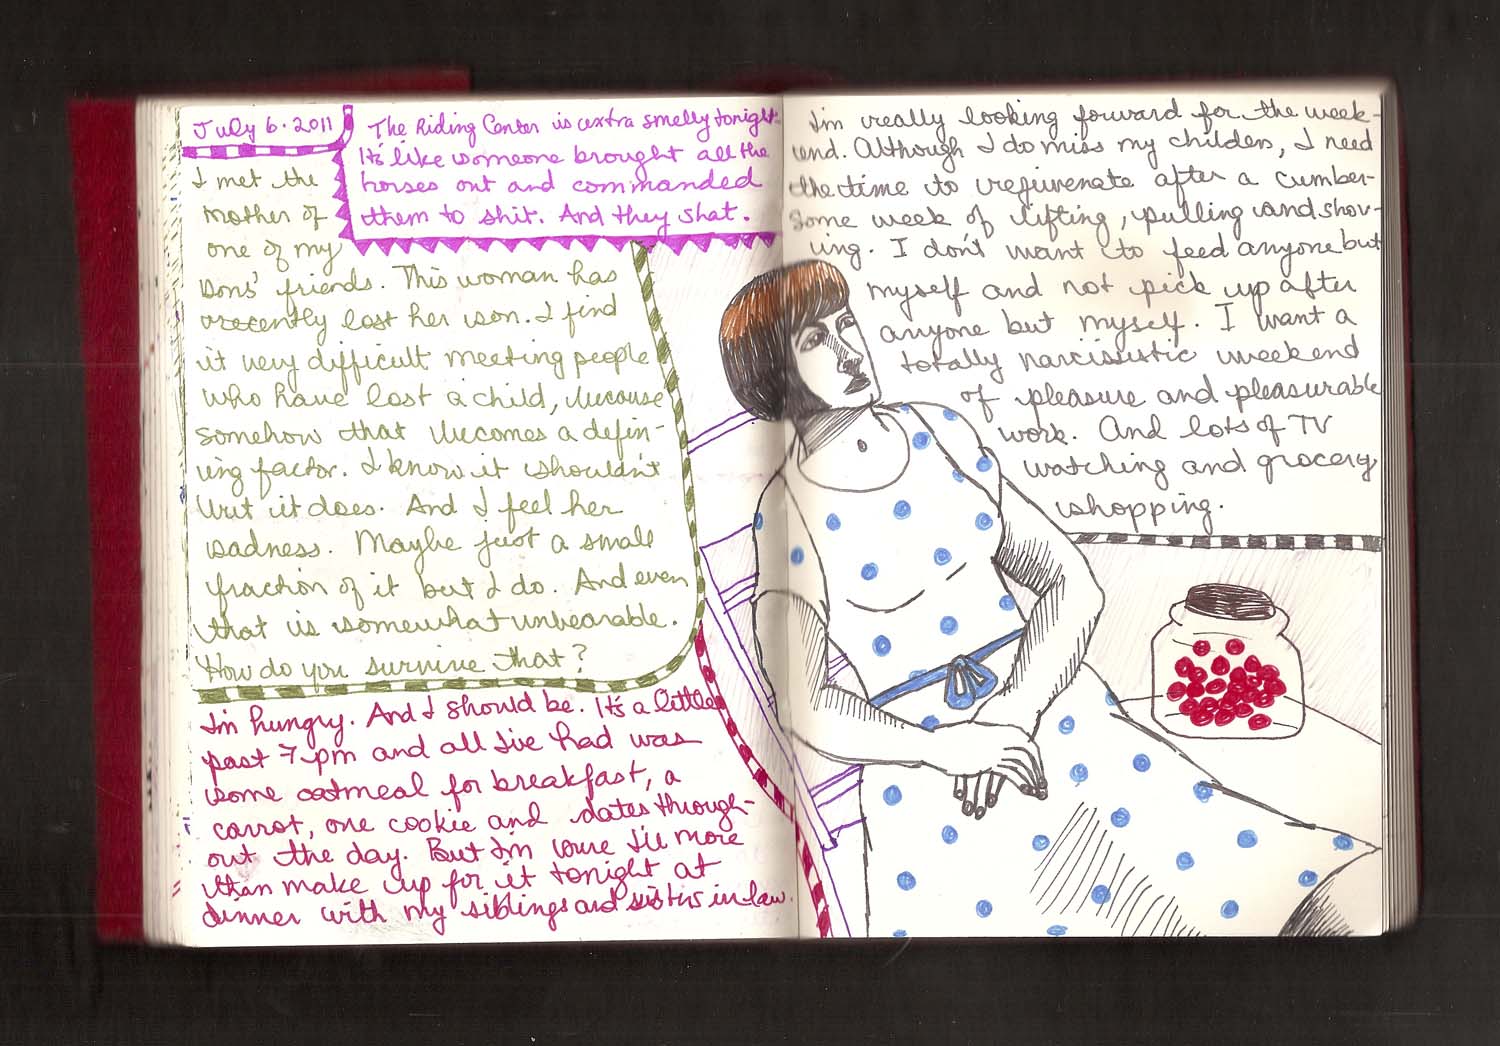 July 6. 2011
The Riding Center is extra smelly tonight.
It's like someone brought all the
horses out and commanded
them to shit. And they shat.
I met the
mother of
one of my
sons' friends. This woman has
recently lost her son. I find
it very difficult meeting people
who have lost a child, because
somehow that becomes a defin-
ing factor. I know it shouldn't
but it does. And I feel her
sadness. Maybe just a small
fraction of it but I do. And even
that is somewhat unbearable.
How do you survive that?
I'm hungry. And I should be. It's a little
past 7 pm and all I've had was
some oatmeal for breakfast, a
carrot, one cookie and dates through-
out the day. But I'm sure I'll more
than make up for it tonight at
dinner with my siblings and sisters in-law.
I'm really looking forward for the week-
end. Although I do miss my children, I need
the time to rejuvenate after a cumber-
some week of lifting, pulling and shov-
ing. I don't want to feed anyone but
myself and not pick up after
anyone but myself. I want a
totally narcissistic weekend
of pleasure and pleasurable
work. And lots of TV
watching and grocery
shopping.